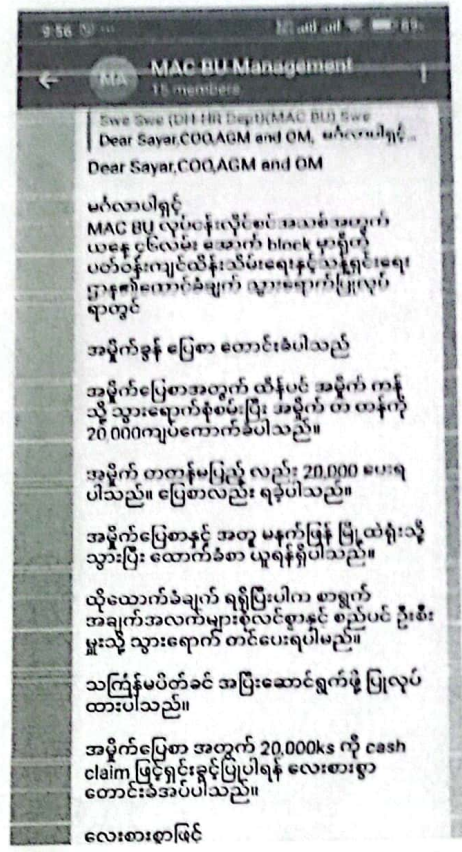 9:56
MAC BU Management
MA
15 members
Swe Swe (DH-HR Dept)(MAC BU) Swe
Dear Sayar,COO,AGM and OM, မင်္ဂလာပါရှင့်...
Dear Sayar,COO,AGM and OM
မင်္ဂလာပါရှင့်
MAC BU လုပ်ငန်းလိုင်စင်အသစ်အတွက်
ယနေ့ ၄၆လမ်း အောက် block မှာရှိတဲ့
ပတ်ဝန်းကျင်ထိန်းသိမ်းရေးနှင့်သန့်ရှင်းရေး
ဌာန၏ထောင်ခံချက် သွားရောက်ပြုလုပ်
ရာတွင်
အမှိုက်ခွန် ပြေစာ တောင်းခံပါသည်
အမှိုက်ပြေစာအတွက် ထိန်ပင် အမှိုက် ကန်
သို့ သွားရောက်စုံစမ်းပြီး အမှိုက် တ တန်ကို
20,000ကျပ်ကောက်ခံပါသည်။
အမှိုက် တတန်မပြည့် လည်း 20,000 ပေးရ
ပါသည်။ ပြေစာလည်း ရခဲ့ပါသည်။
အမှိုက်ပြေစာနှင့် အတူ မနက်ဖြန် မြို့ထဲရုံးသို့
သွားပြီး ထောက်ခံစာ ယူရန်ရှိပါသည်။
ထိုထောက်ခံချက် ရရှိပြီးပါက စာရွက်
အချက်အလက်များစုံလင်စွာနှင့် စည်ပင် ဦးစီး
မှူးသို့ သွားရောက် တင်ပေးရပါမည်။
သင်္ကြန်မပိတ်ခင် အပြီးဆောင်ရွက်ဖို့ ပြုလုပ်
ထားပါသည်။
အမှိုက်ပြေစာ အတွက် 20,000ks ကို cash
claim ဖြင့်ရှင်းခွင့်ပြုပါရန် လေးစားစွာ
တောင်းခံအပ်ပါသည်။
လေးစားစွာဖြင့်